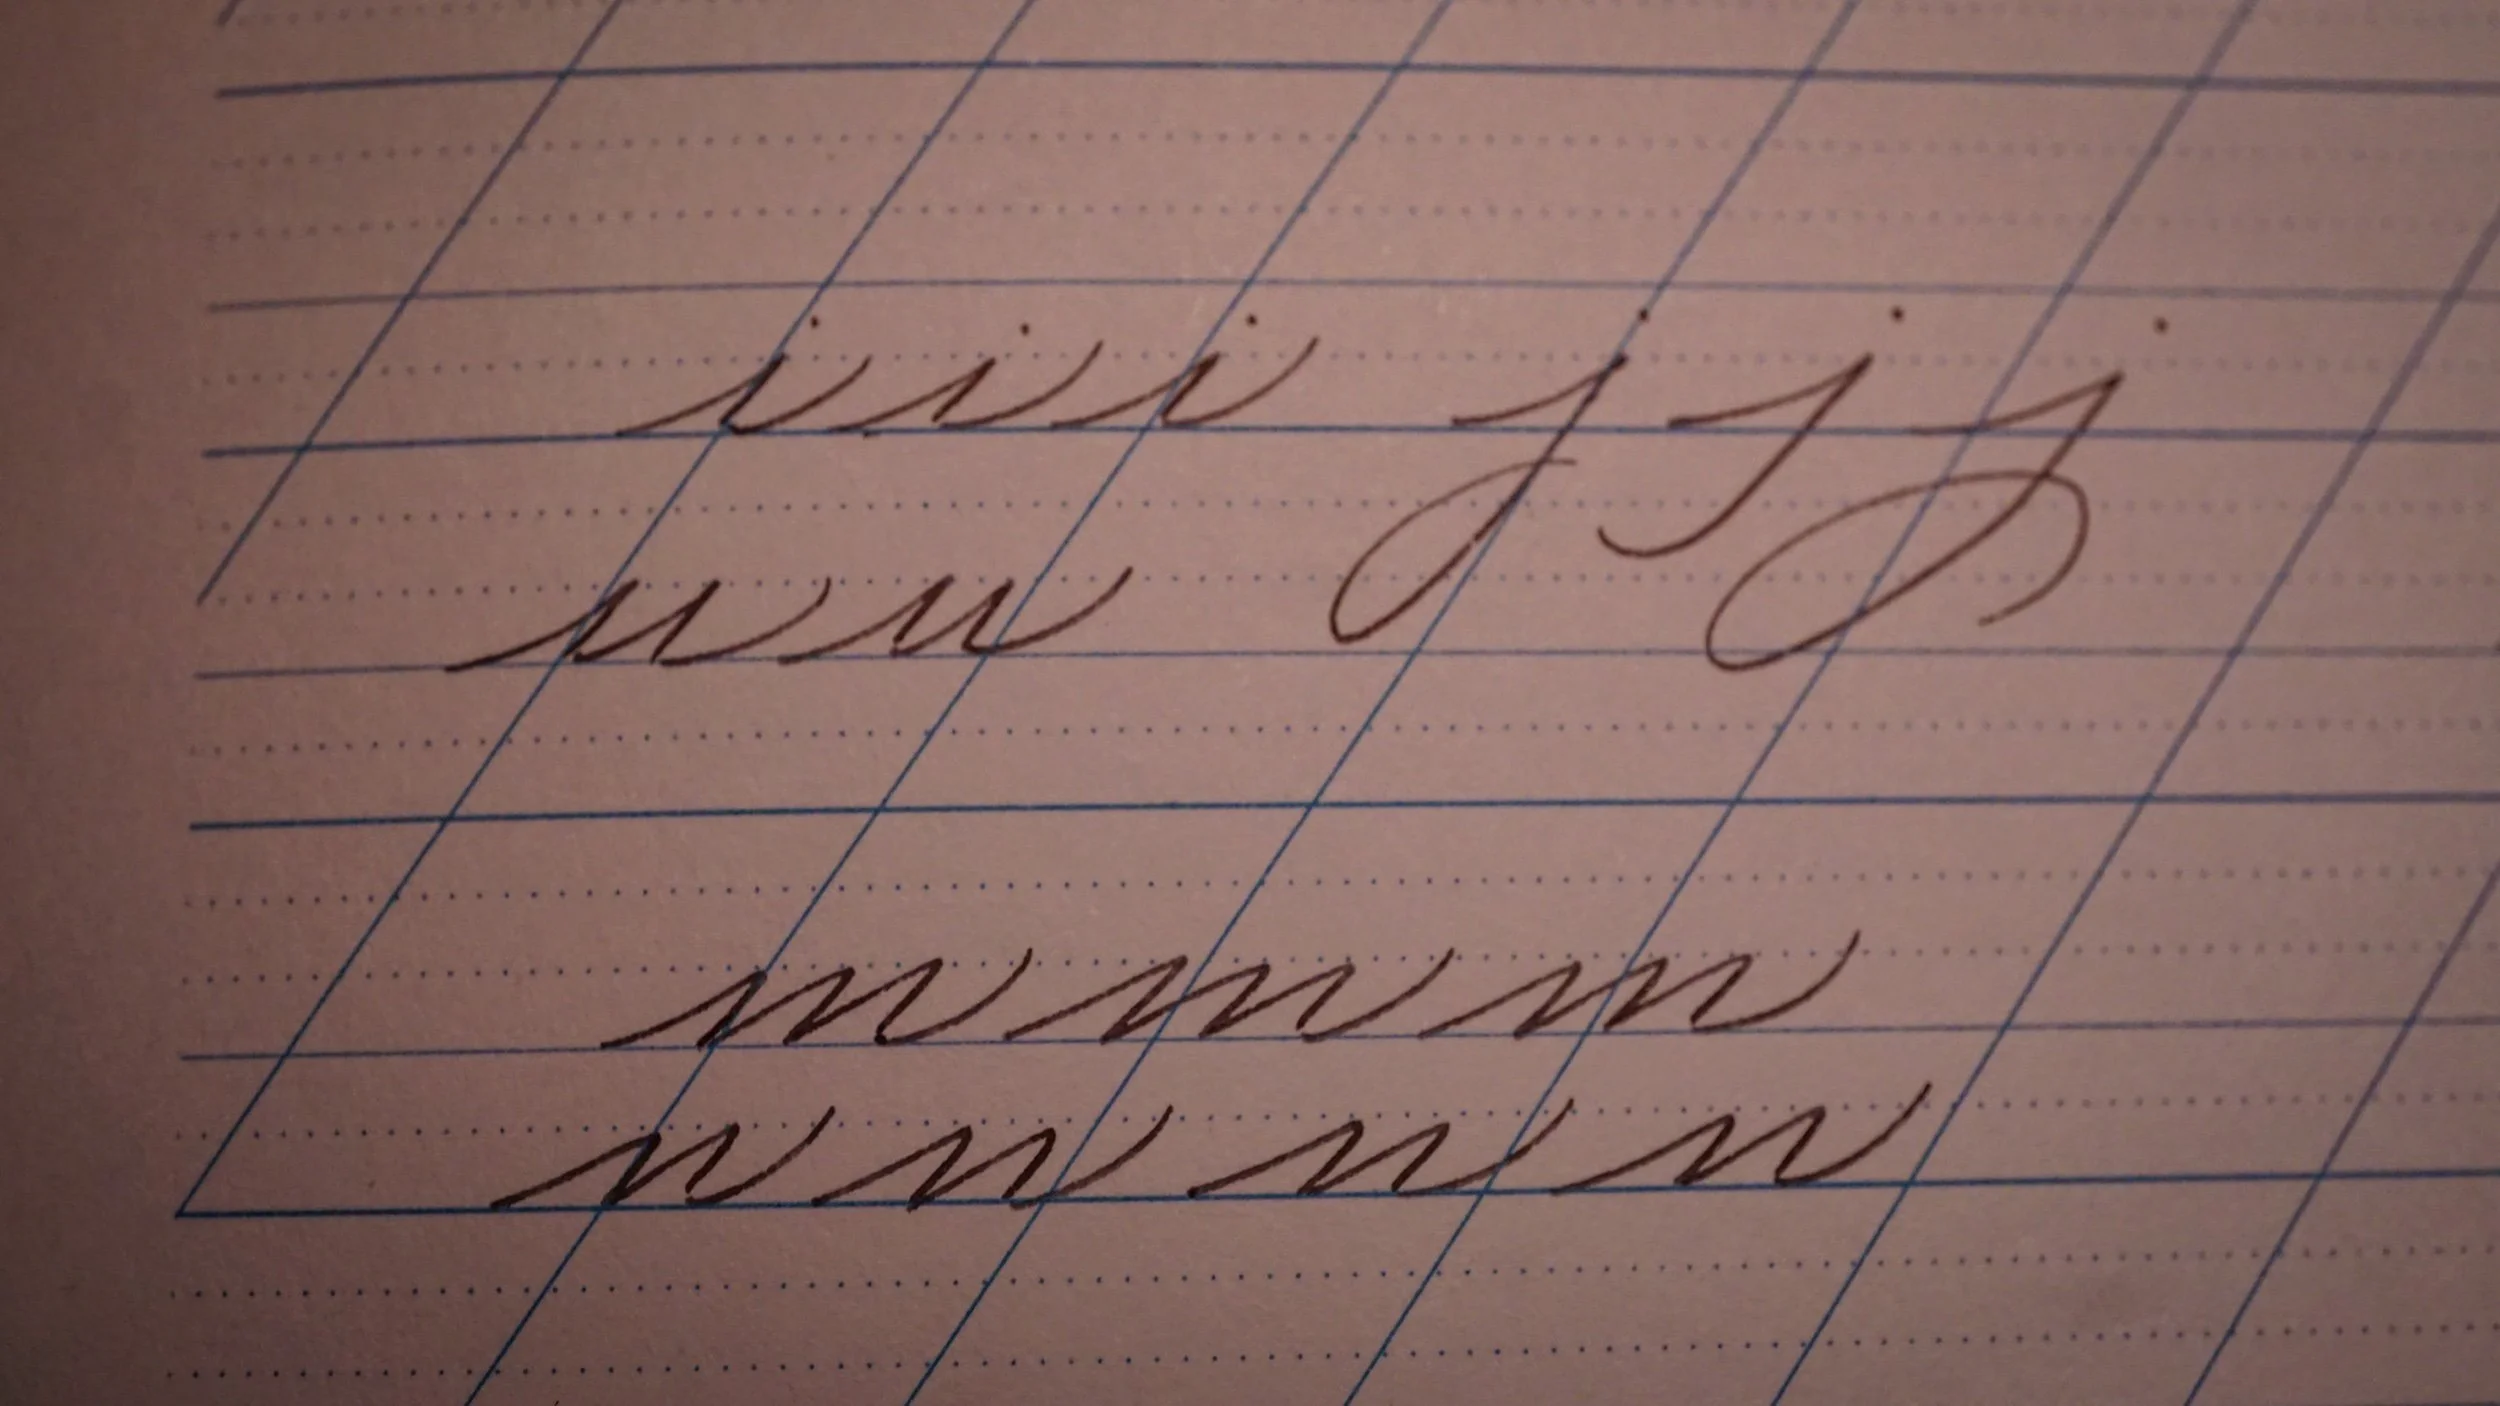 i i i j j j
u u
m m m
n n n n